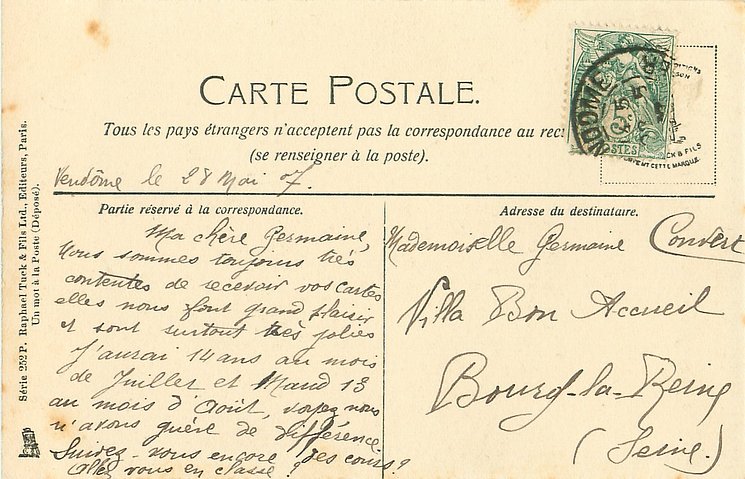 CARTE POSTALE.
Tous les pays étrangers n'acceptent pas la correspondance au rect
(se renseigner à la poste).
Vendôme le 28 Mai 07.
Partie réservé à la correspondance.
Ma chère Germaine,
Nous sommes toujours très
contentes de recevoir vos cartes
elles nous font grand plaisir
et sont surtout très jolies
J'aurai 14 ans au mois
de Juillet et Maud 13
au mois d'Août, voyez nous
n'avons guère de différence.
Suivez-vous encore des cours?
Allez vous en classe?
Adresse du destinataire.
Mademoiselle Germaine Convert
Villa Bon Accueil
Bourg-la-Reine
(Seine.)
Série 252 P. Raphael Tuck & Fils Ltd., Editeurs, Paris.
Un mot à la Poste (Déposé).
VENDOME
POSTES
CK & FILS
CETTE MARQUE